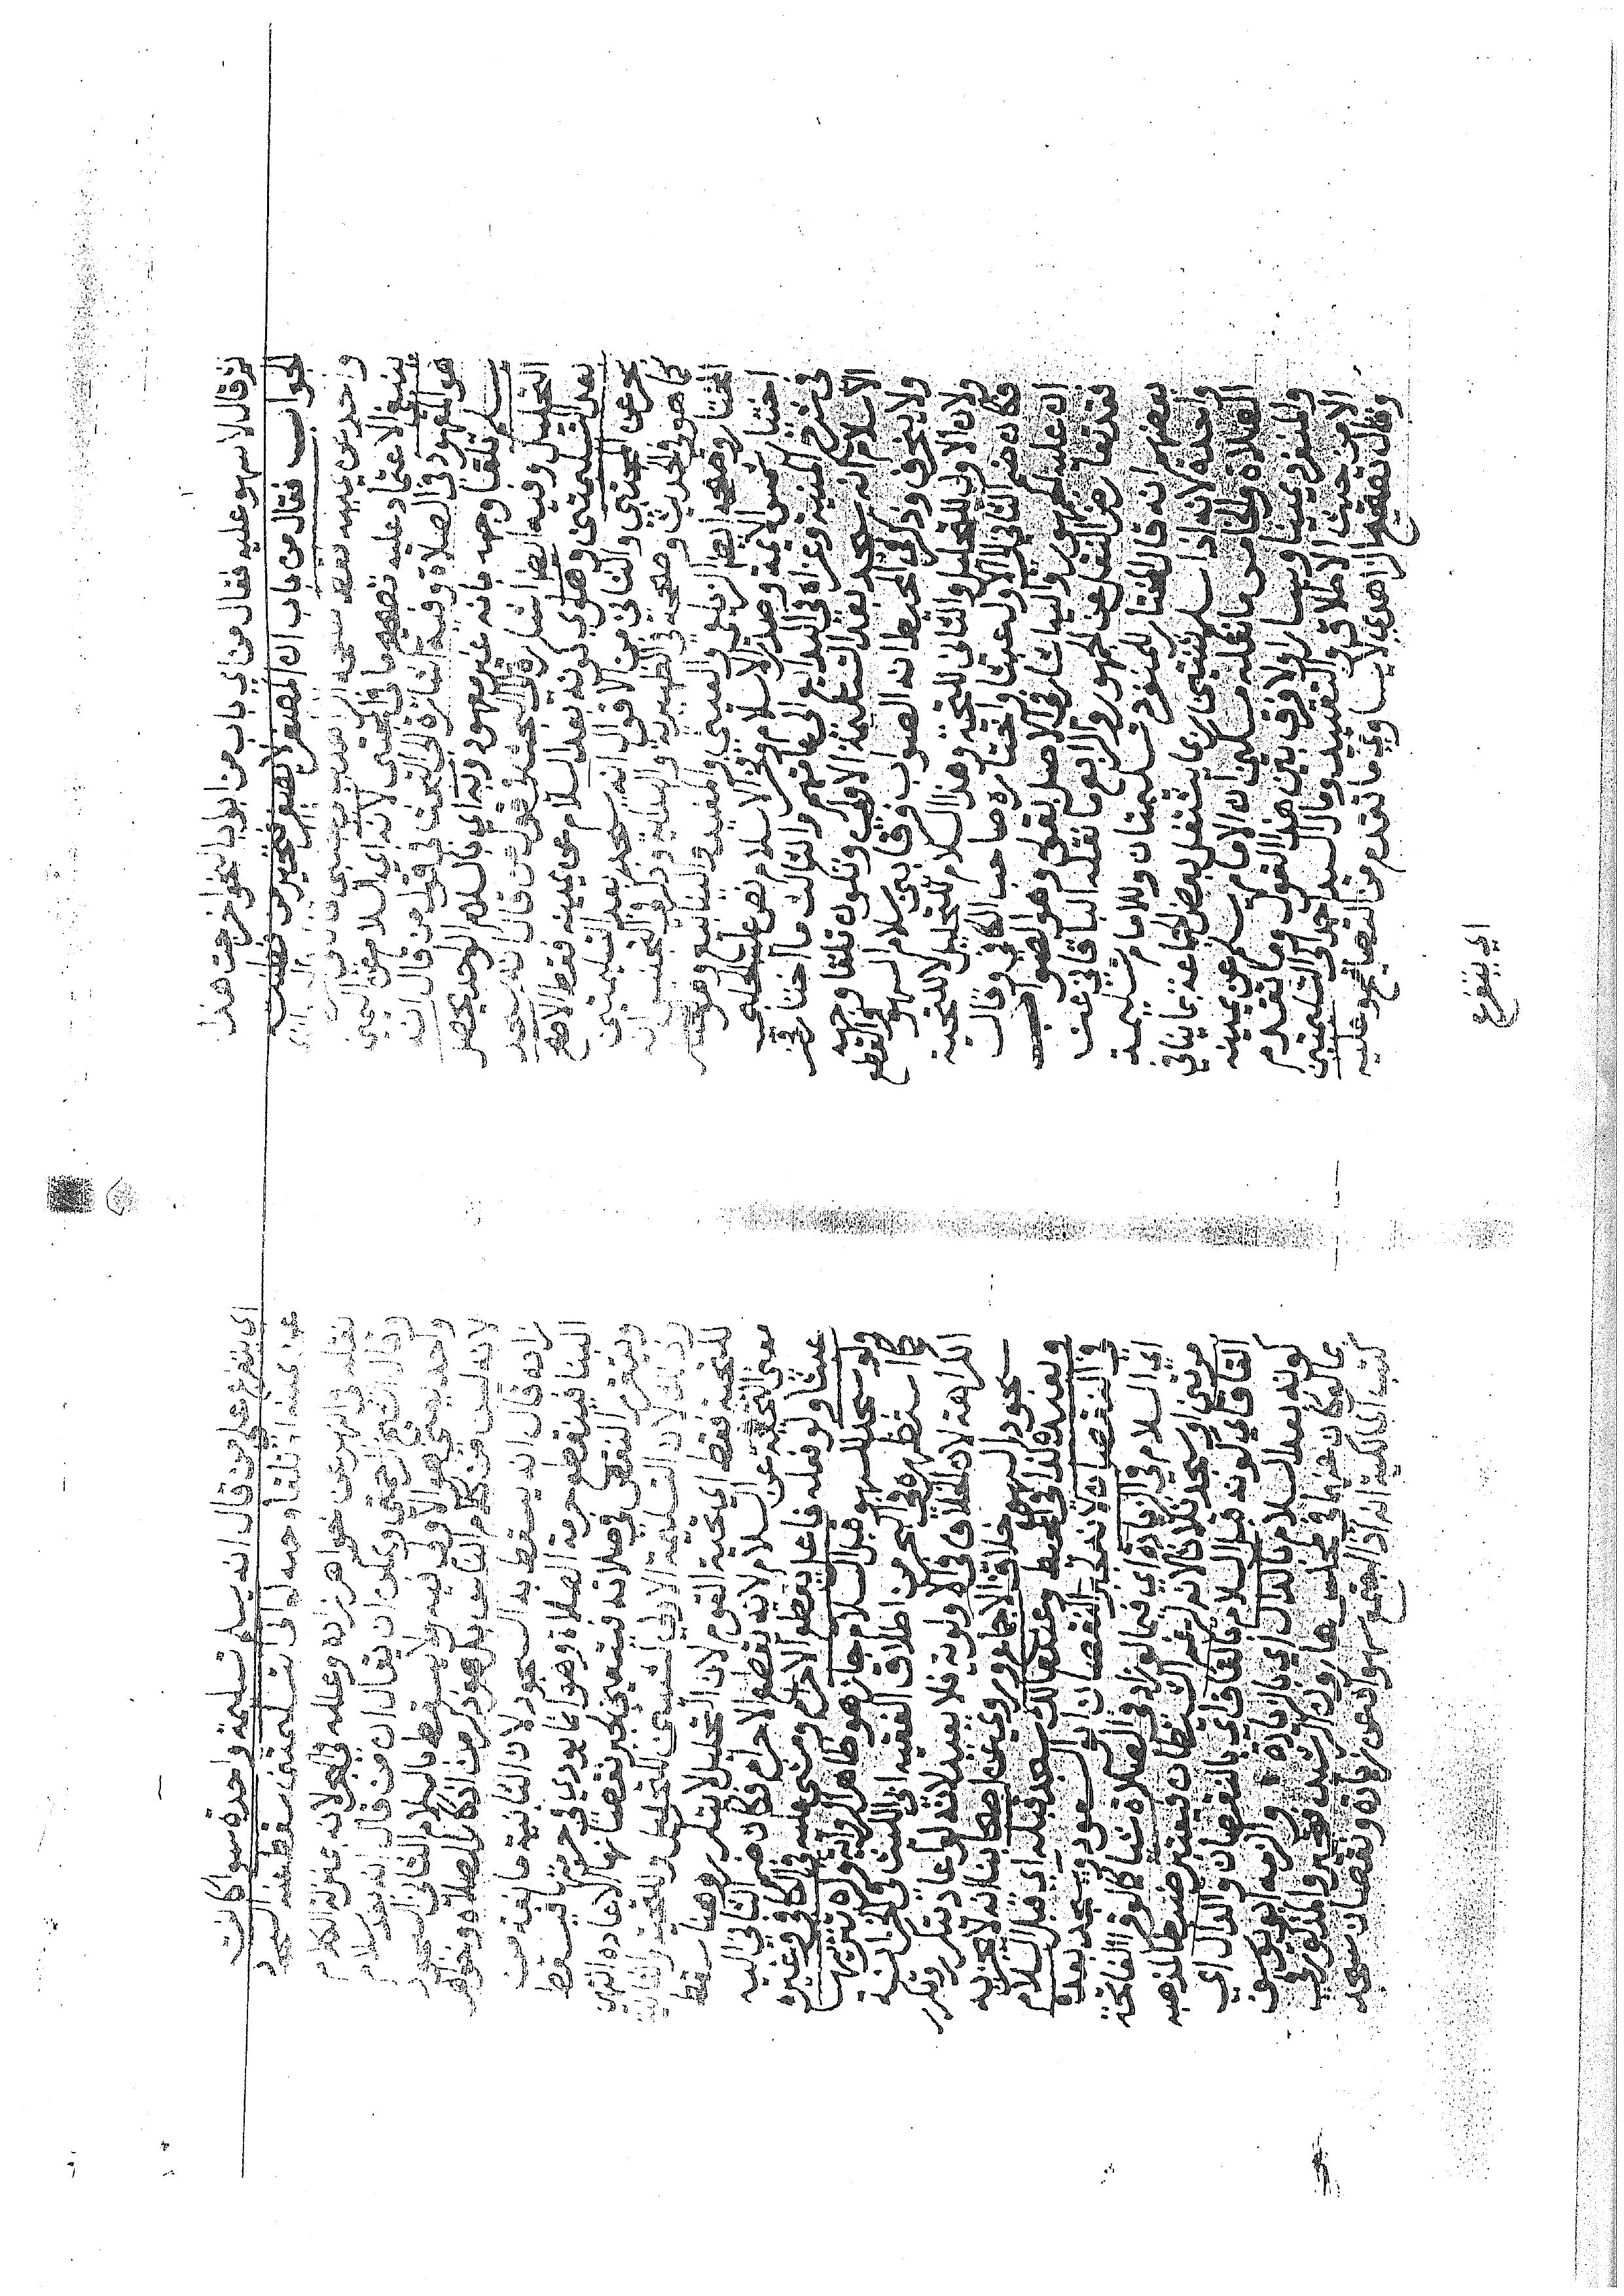 ثم قال لا سهو عليه فقال من اي باب من ابواب النحو خرجت هذا
الجواب فقال من باب ان المصغر لا يصغر فتحير من فطنته
واحد عن يمينه فقط
ينبغي الاعتماد عليه تصحيح ما في المجتبى لانه اي السلام عن اليمين
هو المعهود في الصلاة وفيه اشارة الى التعريض في قول من قال انه
يسلم تلقا وجهه بانه غير معهود وبه اي بالسلام الواحد يحصل
التحليل وفيه ايضا اشارة الى البحث في قول من قال انه يسجد
بعد التسليمتين وهو اي كونه بعد السلام عن يمينه فقط الاصح
بحر عن المجتبى والثاني من الاقوال انه يسجد بعد التسليمتين
كما هو في الحديث وصححه في الظهيرية والهداية وذكر في المجتبى انه
المختار وصححه ايضا الزيلعي والعيني والمفيد والينابيع وهو
اختيار شمس الايمة وصدر الاسلام اخ فخر الاسلام نص عليه الحلبي
في شرح المنية وعزاه في البدايع الى عامتهم والثالث ما اختاره فخر
الاسلام انه يسجد بعد التسليمة الاولى وتكون تلقا وجهه
ولا ينحرف وذكر في المحيط انه الصواب فرقا بين سلام السهو والقطع
ولان الاول للتحليل والثاني للتحية وهذا السلام للتحليل لا للتحية
فكان ضم الثاني الى الاول عبثا واختاره صاحب الكافي وقال
ان عليه الجمهور واليه اشار في الاصل بقوله وهو الصواب
فقد تعارض النقل عن الجمهور والرابع ما نقله الباقاني عن
بعضهم انه قال المختار للمنفرد تسليمتان وللامام تسليمة
واحدة لانه اذا سلم ثنتين ربما يشتغل بعض الجماعة بما ينافي
الصلاة والخامس ما نقله مسكين ان الامام يسلم عن يمينه
والمنفرد يمينا ويسارا ولا فرق بين هذا القول وما تقدم
الا من حيث الاطلاق والتقييد ومال السيد احمد الى التسليمتين
وقال تصحيح الزاهدي لا يساوي ما تقدم من التصاحيح وعليه
اي يتفرع
اي يتفرع على من قال انه يسلم تسليمة واحدة سوا كانت
عن يمينه او تلقا وجهه لو اتى بتسليمتين سقط عنه السجود
نقله في النهر عن خواهر زاده وعلله في البحر لانه بمنزلة الكلام
وقال الشيخ الرحمتي ويمكن ان يقال ان من قال انه بعد سلام
واحد يعني هو الاولى فيه ولا يسقط بالسلام الثاني السجود
لانه ليس من كلام الناس بل هو ذكر من اذكار الصلاة وخواهر
زاده قال انه يسقط به السجود لان الثانية مانعة من
البنا فينقطع حرمة الصلاة وهو انما يودى في حرمتها فيسقط
ويتقرر النقص في صلاته فيتعين بجبر نقصانها الاعادة انتهى
لان التسليمة الاولى لشيئين للتحليل وللتحية والثانية
للتحية فقط اي تحية القوم لان التحليل لا يتكرر وهنا سقط
معنى التحية عن السلام لانه يقطع الاحرام فكان ضم الثاني اليه
عبثا ولو فعله فاعل يقطع الاحرام ومشى عليه في الكافي وغيره
ولو سجد للسهو قبل السلام جاز هو ظاهر الرواية وكره تنزيها
كما استظهره في البحر من اطلاق الفقيه ابي الليث في الخزانة
الكراهة لان الخلاف في الاولوية فلا يعيد لانه لو اعاد يتكرر
سجود السهو خلاف الاجماع وروي عن اصحابنا انه لا يجزيه
ويعيده كذا في المحيط وعند مالك يسجد قبله اي قبل السلام
في النقصان لانه جبر النقصان ابو السعود ويسجد بعده
اي السلام في الزيادة اي فيما لو زاد في الصلاة شيا كما لو قرا الفاتحة
مرتين او سجد ثلاثا لانه ترغيم الشيطان فيعتبر ضبطا لمذهبه
القاف اي كونه قبل السلام بالقاف اي بالنقصان والدال اي
كونه بعد السلام بالدال اي بالزيادة والزمه ابو يوسف
بما لو كان عنهما في مجلس هارون الرشيد فتحير والمنقول في
كتب المالكية انه اذا اجتمع سهوان عن زيادة ونقصان سجد